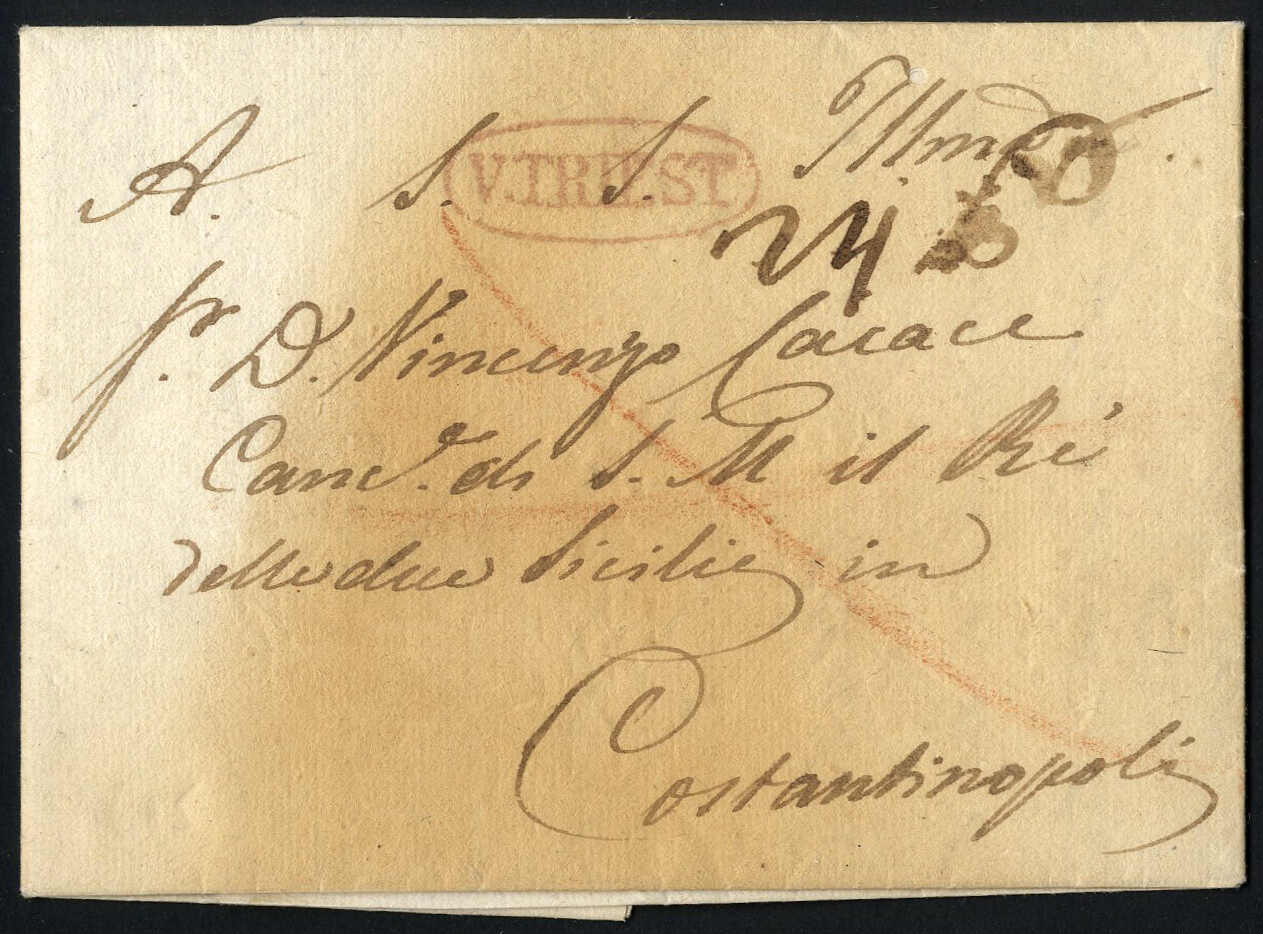 A. S. S. Illma.
V. TRIEST
24
Sr. D. Vincenzo Cacace
Canc.e di S. M il Ré
delle due Sicilie in
Costantinopoli